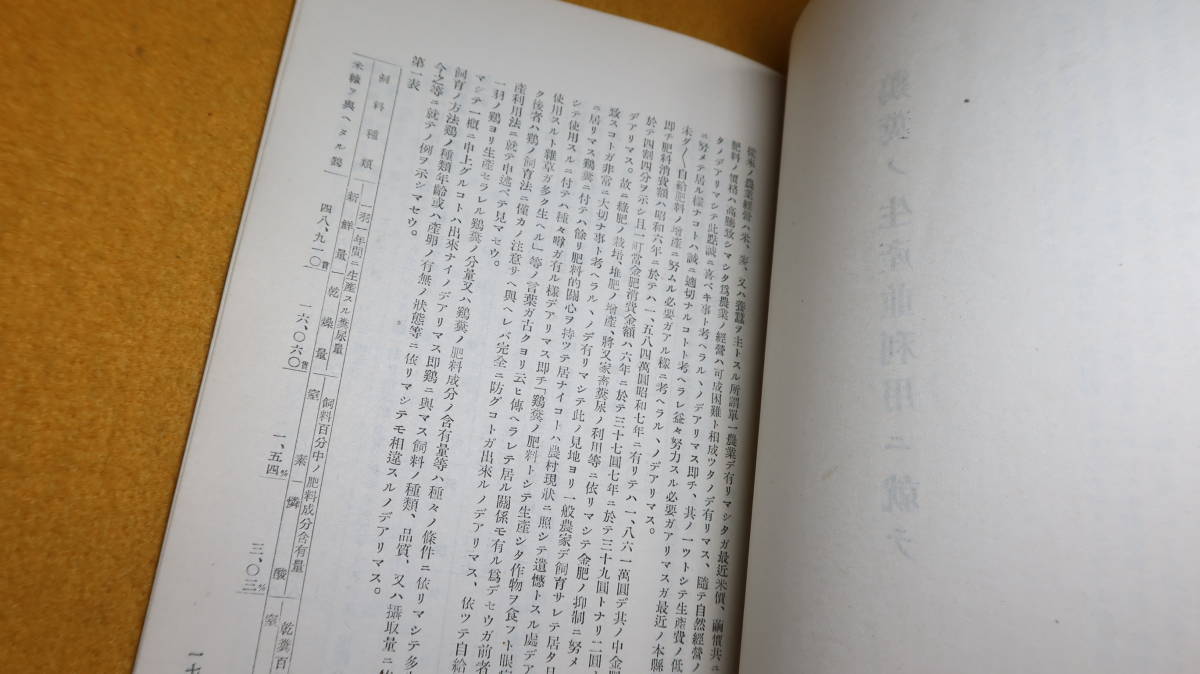 從來ノ農業經營ハ米、麥、又ハ養蠶ヲ主トスル所謂單一農業デ有リマシタガ最近米價、繭價共ニ
肥料ノ價格ハ高騰致シマシタ爲農業ノ經營ハ可成困難ト相成ツタノデ有リマス、隨テ自然經營ノ
タノデアリマシテ此點誠ニ喜ベキ事ト考ヘラルヽノデアリマス即チ、其ノ一ツトシテ生產費ノ低
ニ努メテ居ル樣ナコトハ誠ニ適切ナルコトト考ヘラレ益々努力スル必要ガアリマスガ最近ノ本縣
未ダ〱自給肥料ノ增產ニ努ムル必要ガアル樣ニ考ヘラルヽノデアリマス。
即チ肥料消費額ハ昭和六年ニ於テハ一、五八四萬圓昭和七年ニ有リテハ一、八六一萬圓デ其ノ中金肥
於テ四割四分ヲ示シ且一町當金肥消費金額ハ六年ニ於テ三十七圓七年ニ於テ三十九圓トナリ二圓
デアリマス。故ニ綠肥ノ栽培、堆肥ノ增產、將又家畜糞尿ノ利用等ニ依リマシテ金肥ノ抑制ニ努メ
致スコトガ非常ニ大切ナ事ト考ヘラルヽノデ有リマシテ此ノ見地ヨリ一般農家デ飼育サレテ居タ
ニ居リマス鷄糞ニ付テハ餘リ肥料的關心ヲ持ツテ居ナイコトハ農村現狀ニ照シテ遺憾トスル處デア
シテ使用スルニ付テハ種々噂ガ有ル樣デアリマス即チ「鷄糞ノ肥料トシテ生產シタ作物ヲ食フト眼
使用スルト雜草ガ多ク生ヘル」等ノ言葉ガ古クヨリ云ヒ傳ヘラレテ居ル關係モ有ル爲デセウガ前者
ク後者ハ鷄ノ飼育法ニ僅カノ注意サヘ與ヘレバ完全ニ防グコトガ出來ルノデアリマス、依ツテ自給
產利用法ニ就テ申述ベテ見マセウ。
一羽ノ鷄ヨリ生產セラレル鷄糞ノ分量又ハ鷄糞ノ肥料成分ノ含有量等ハ種々ノ條件ニ依リマシテ多
マシテ一概ニ申上グルコトハ出來ナイノデアリマス即鷄ニ與マス飼料ノ種類、品質、又ハ攝取量ニ
飼育ノ方法鷄ノ種類年齡或ハ產卵ノ有無ノ狀態等ニ依リマシテモ相違スルノデアリマス。
今之等ニ就テノ例ヲ示シマセウ。
第一表
飼料種類
一羽一年間ニ生產スル糞尿量
新鮮量
乾燥量
飼料百分中ノ肥料成分含有量
窒素
燐酸
乾糞百
窒
米糠ヲ與ヘタル鷄
四八、九一〇
一六、〇六〇
一、五四
三、〇三
一七
鷄糞ノ生產並利用ニ就テ